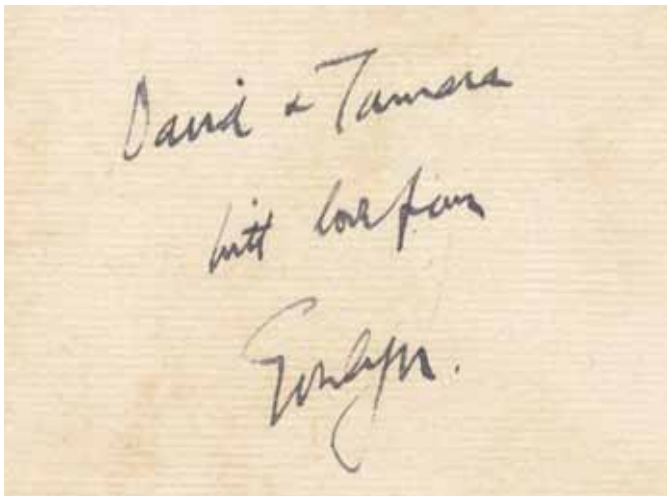 David & Tamara
with love from
Evelyn.